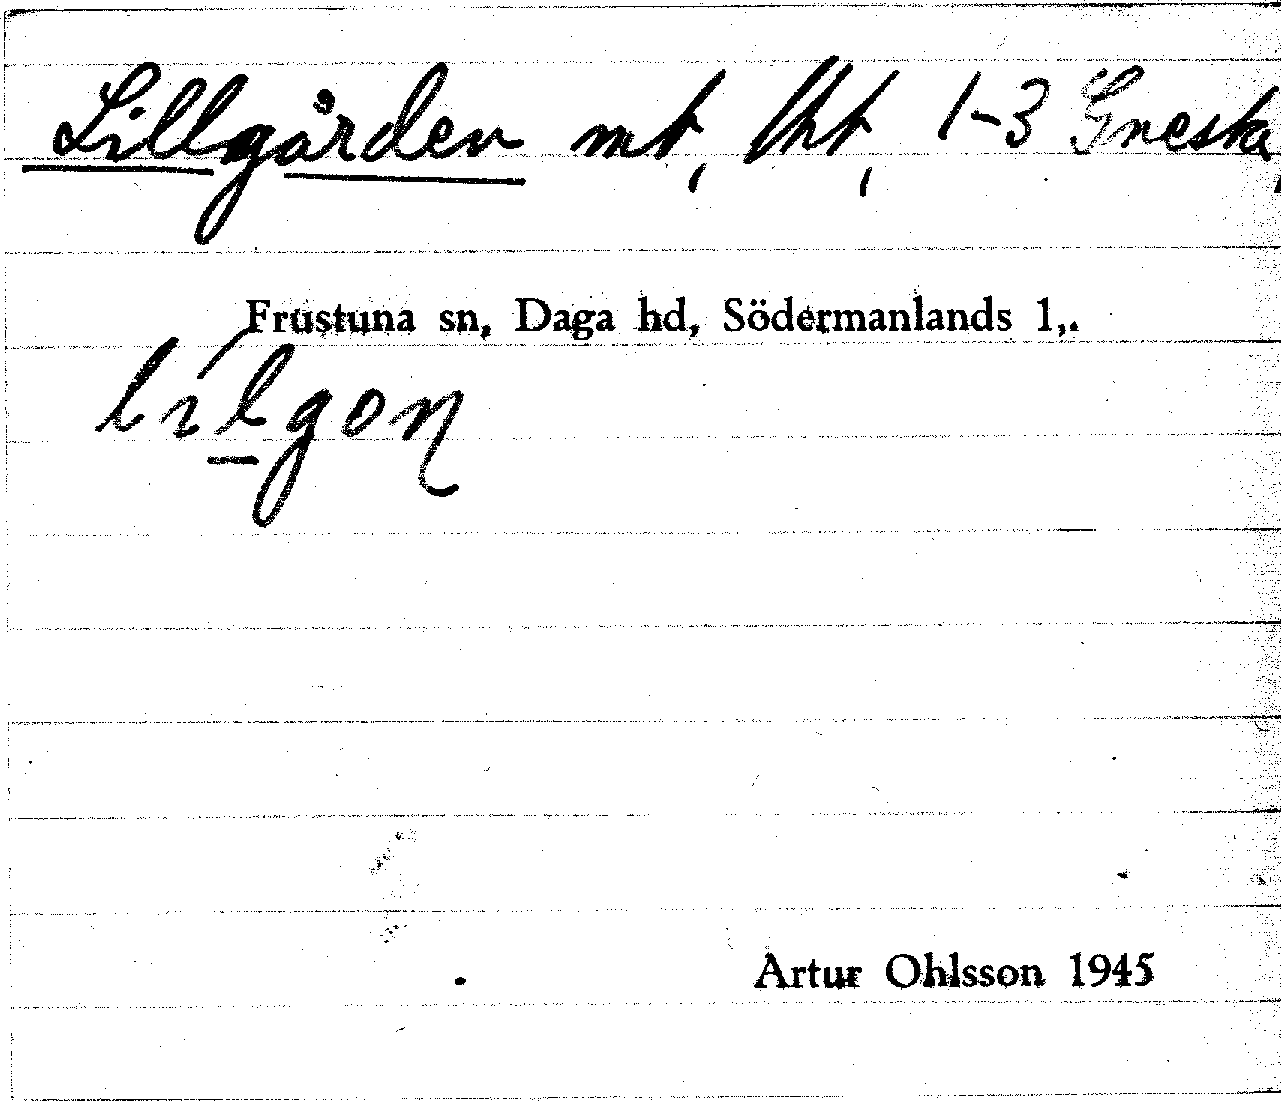 Lillgården mt, lht, 1-3 Gnesta,
Frustuna sn, Daga hd, Södermanlands l,.
Artur Ohlsson 1945